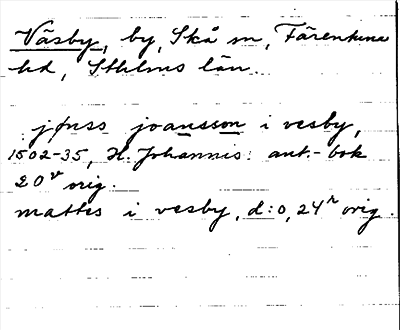 Väsby, by, Skå sn, Färentuna
hd, Sthlms län
jønss joansson i vesby,
1502-35, H. Johannis: ant.-bok
20v orig.
mattes i vesby, d:o, 24r orig.